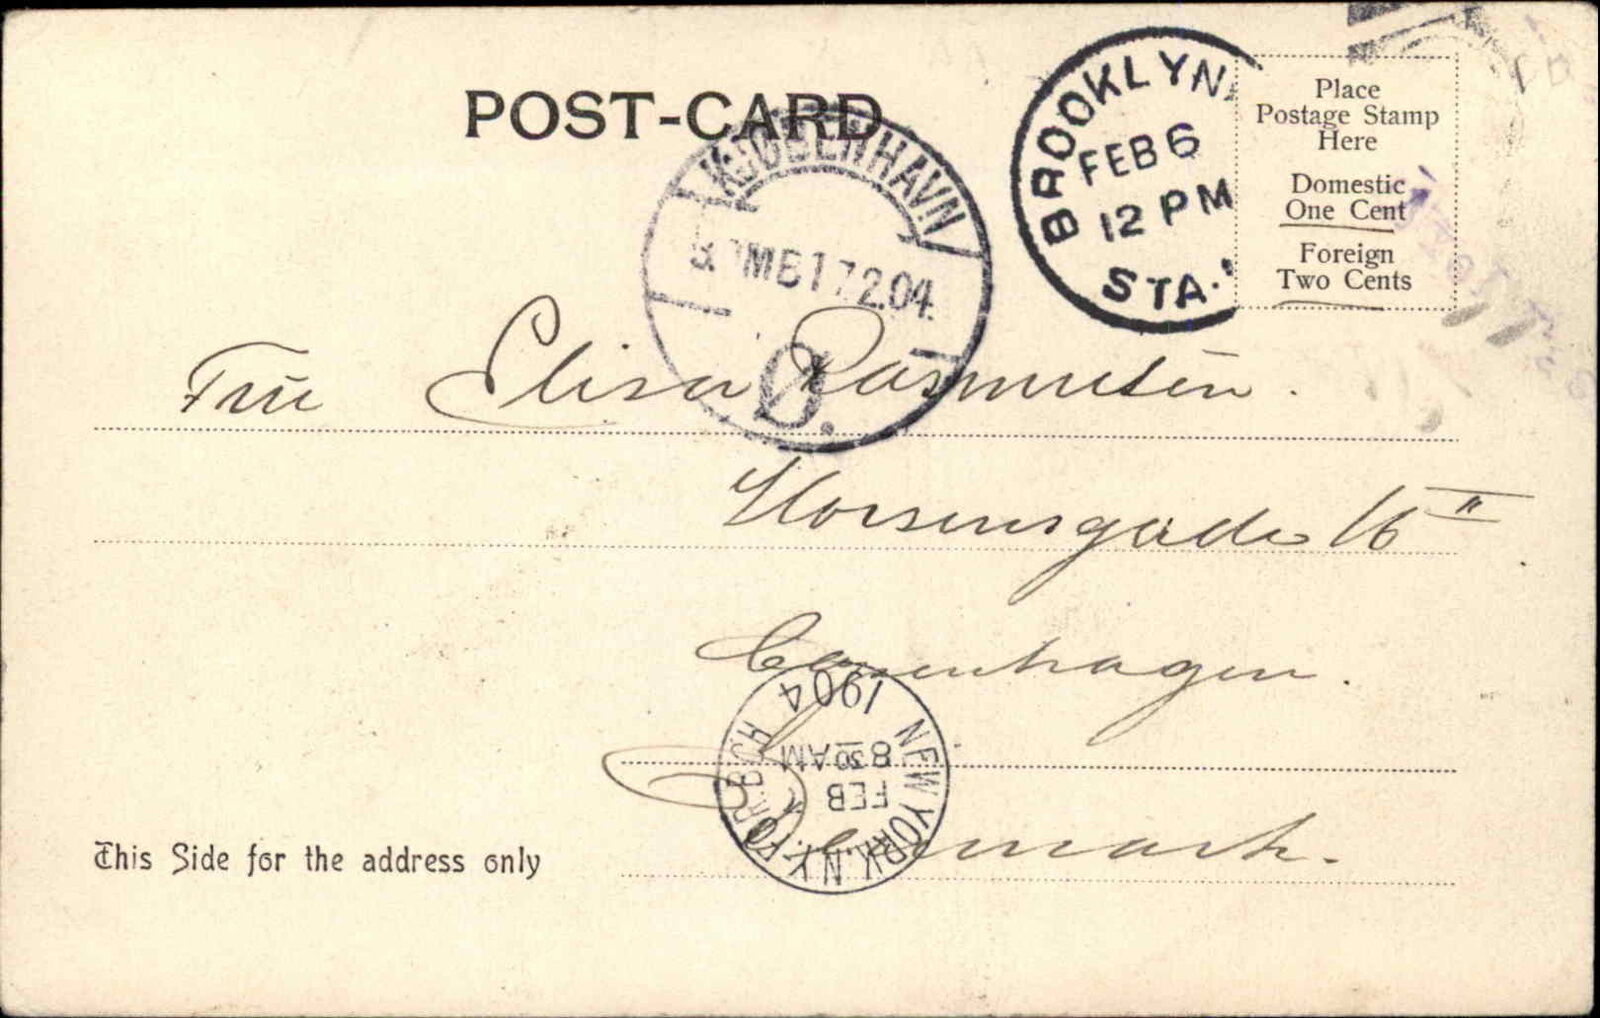 POST-CARD
KJØBENHAVN
MB 17.2.04.
Ø.
BROOKLYN,
FEB 6
12 PM
STA.
Place
Postage Stamp
Here
Domestic
One Cent
Foreign
Two Cents
Frū Elisa Rasmussen.
Horsensgade 16 II
Copenhagen.
Denmark.
NEW YORK, N.Y.
1904
8 30 AM
FEB
This Side for the address only